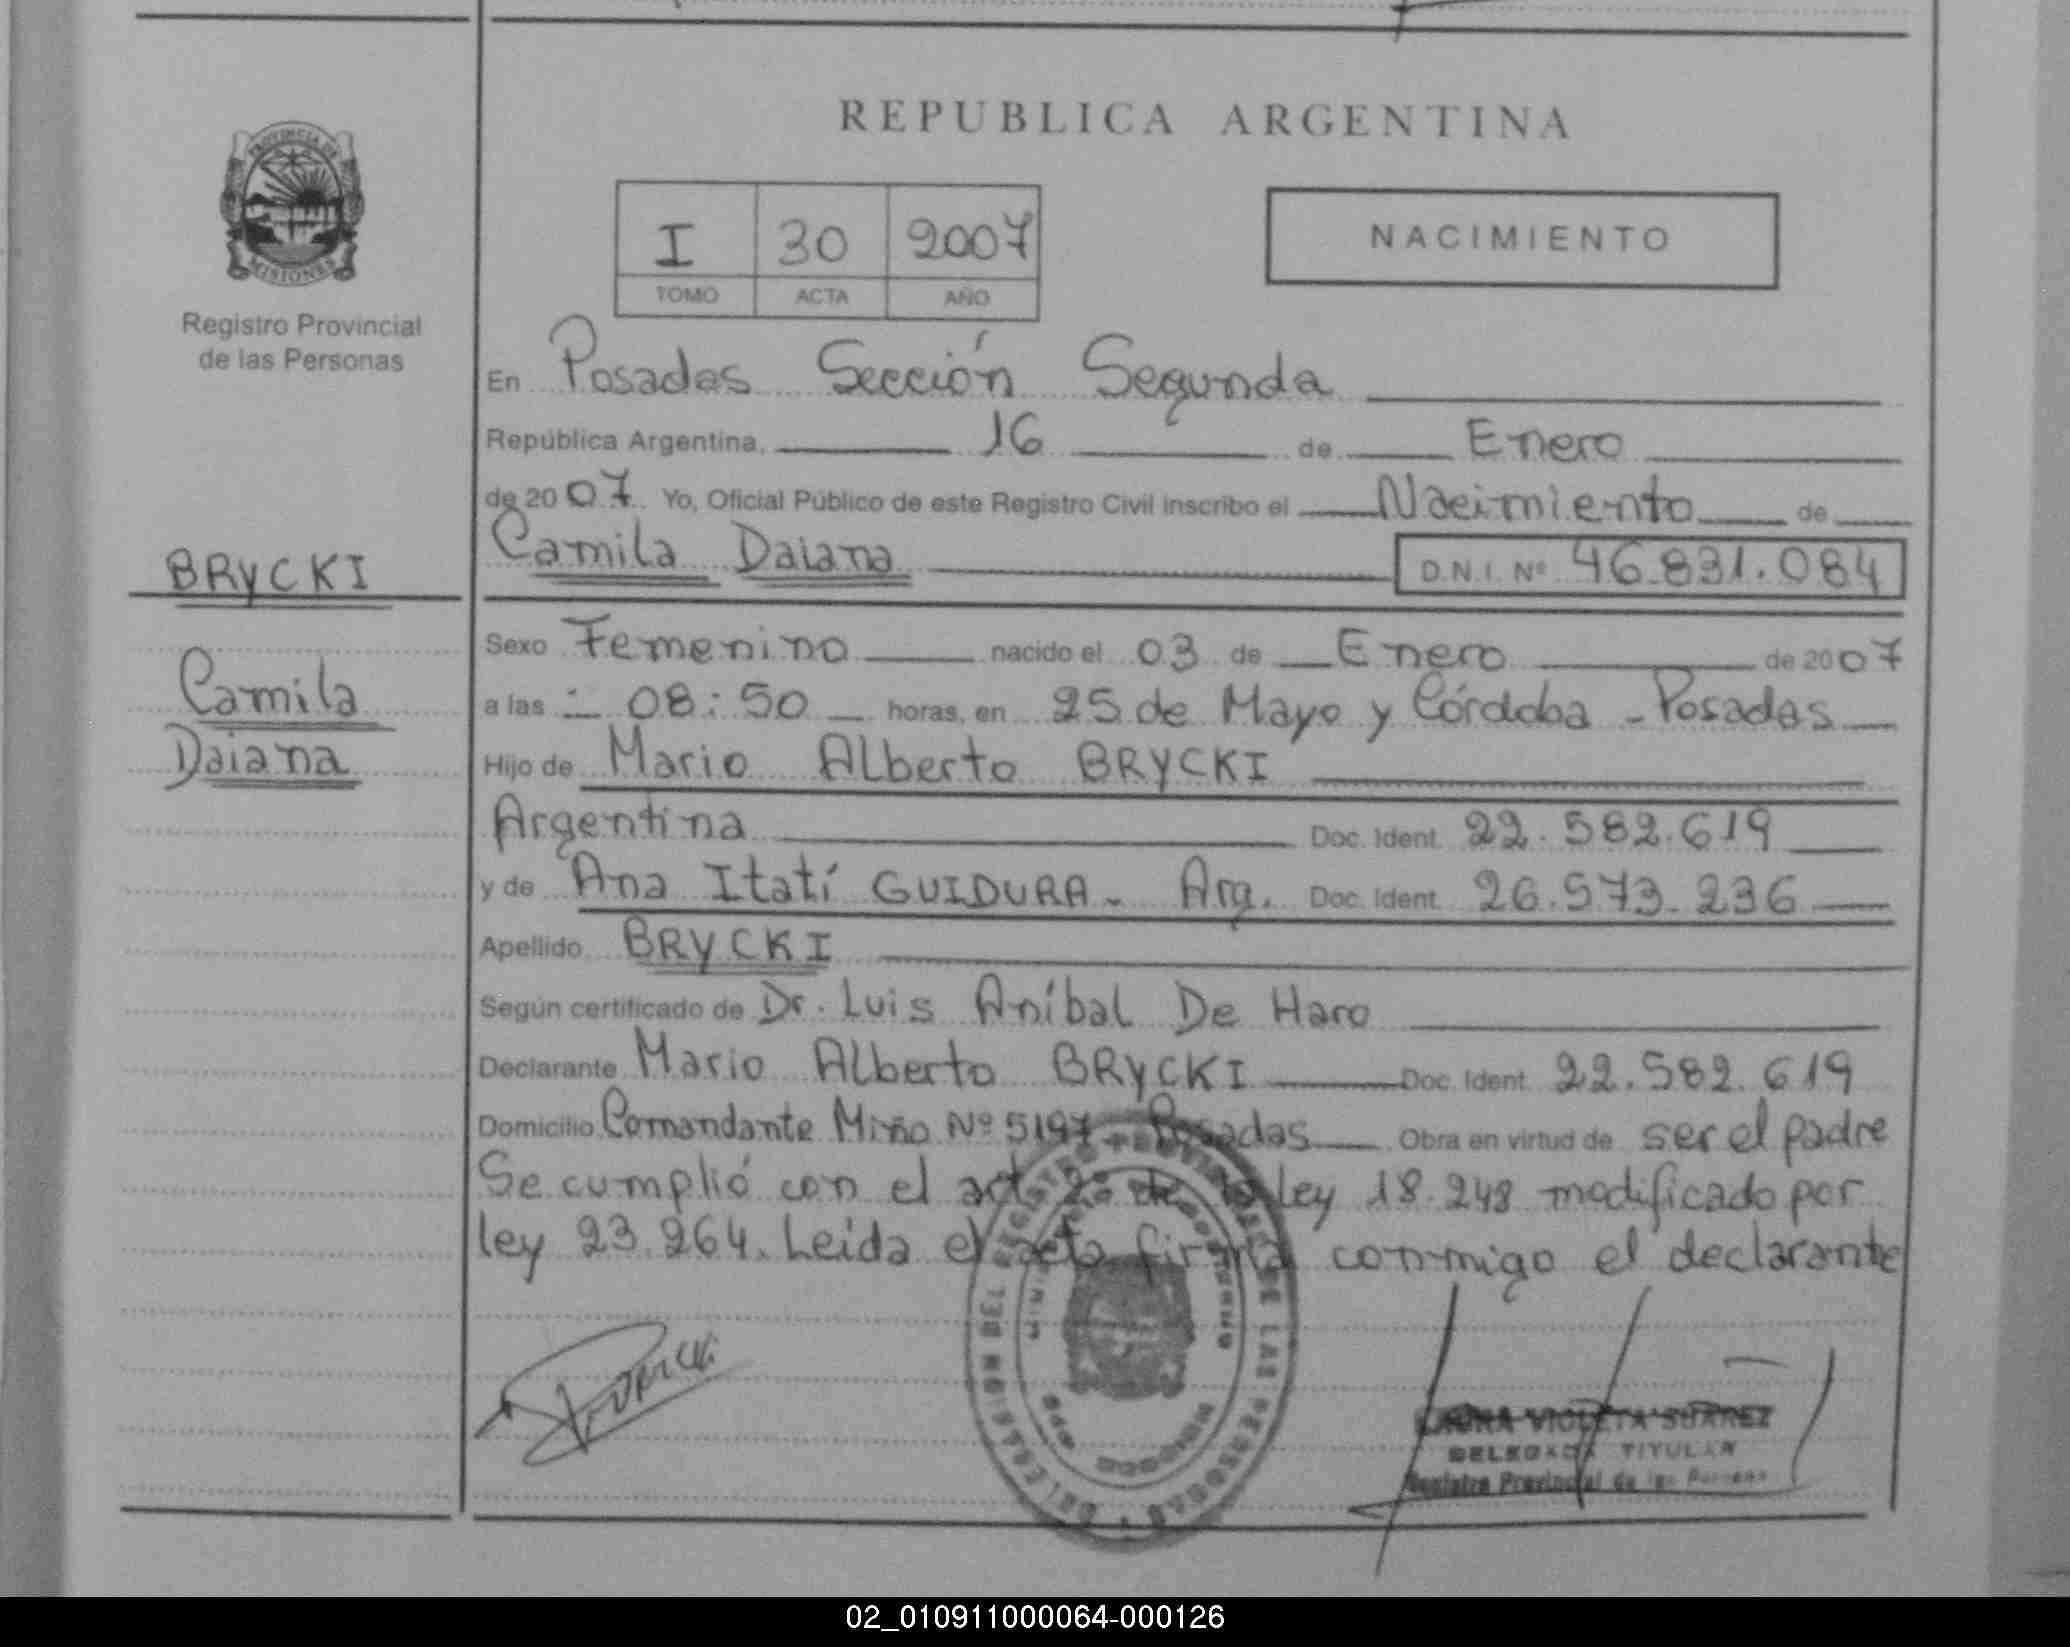 REPUBLICA ARGENTINA
PROVINCIA DE
MISIONES
Registro Provincial
de las Personas
I 30 2007
TOMO ACTA AÑO
NACIMIENTO
En Posadas Sección Segunda
República Argentina, 16 de Enero
de 2007 Yo, Oficial Público de este Registro Civil inscribo el Nacimiento de
Camila Daiana D.N.I. Nº 46.831.084
BRYCKI
Camila
Daiana
Sexo Femenino nacido el 03 de Enero de 2007
a las 08:50 horas, en 25 de Mayo y Córdoba - Posadas
Hijo de Mario Alberto BRYCKI
Argentina Doc. Ident. 22.582.619
y de Ana Itatí GUIDURA - Arg. Doc. Ident. 26.573.236
Apellido BRYCKI
Según certificado de Dr. Luis Aníbal De Haro
Declarante Mario Alberto BRYCKI Doc. Ident. 22.582.619
Domicilio Comandante Miño Nº 5197 - Posadas Obra en virtud de ser el padre
Se cumplió con el art. 2º de la Ley 18.248 modificado por
ley 23.264. Leida el acta firma conmigo el declarante
REGISTRO PROVINCIAL DE LAS PERSONAS
LAURA VIOLETA SUAREZ
DELEGADA TITULAR
Registro Provincial de las Personas
02_010911000064-000126